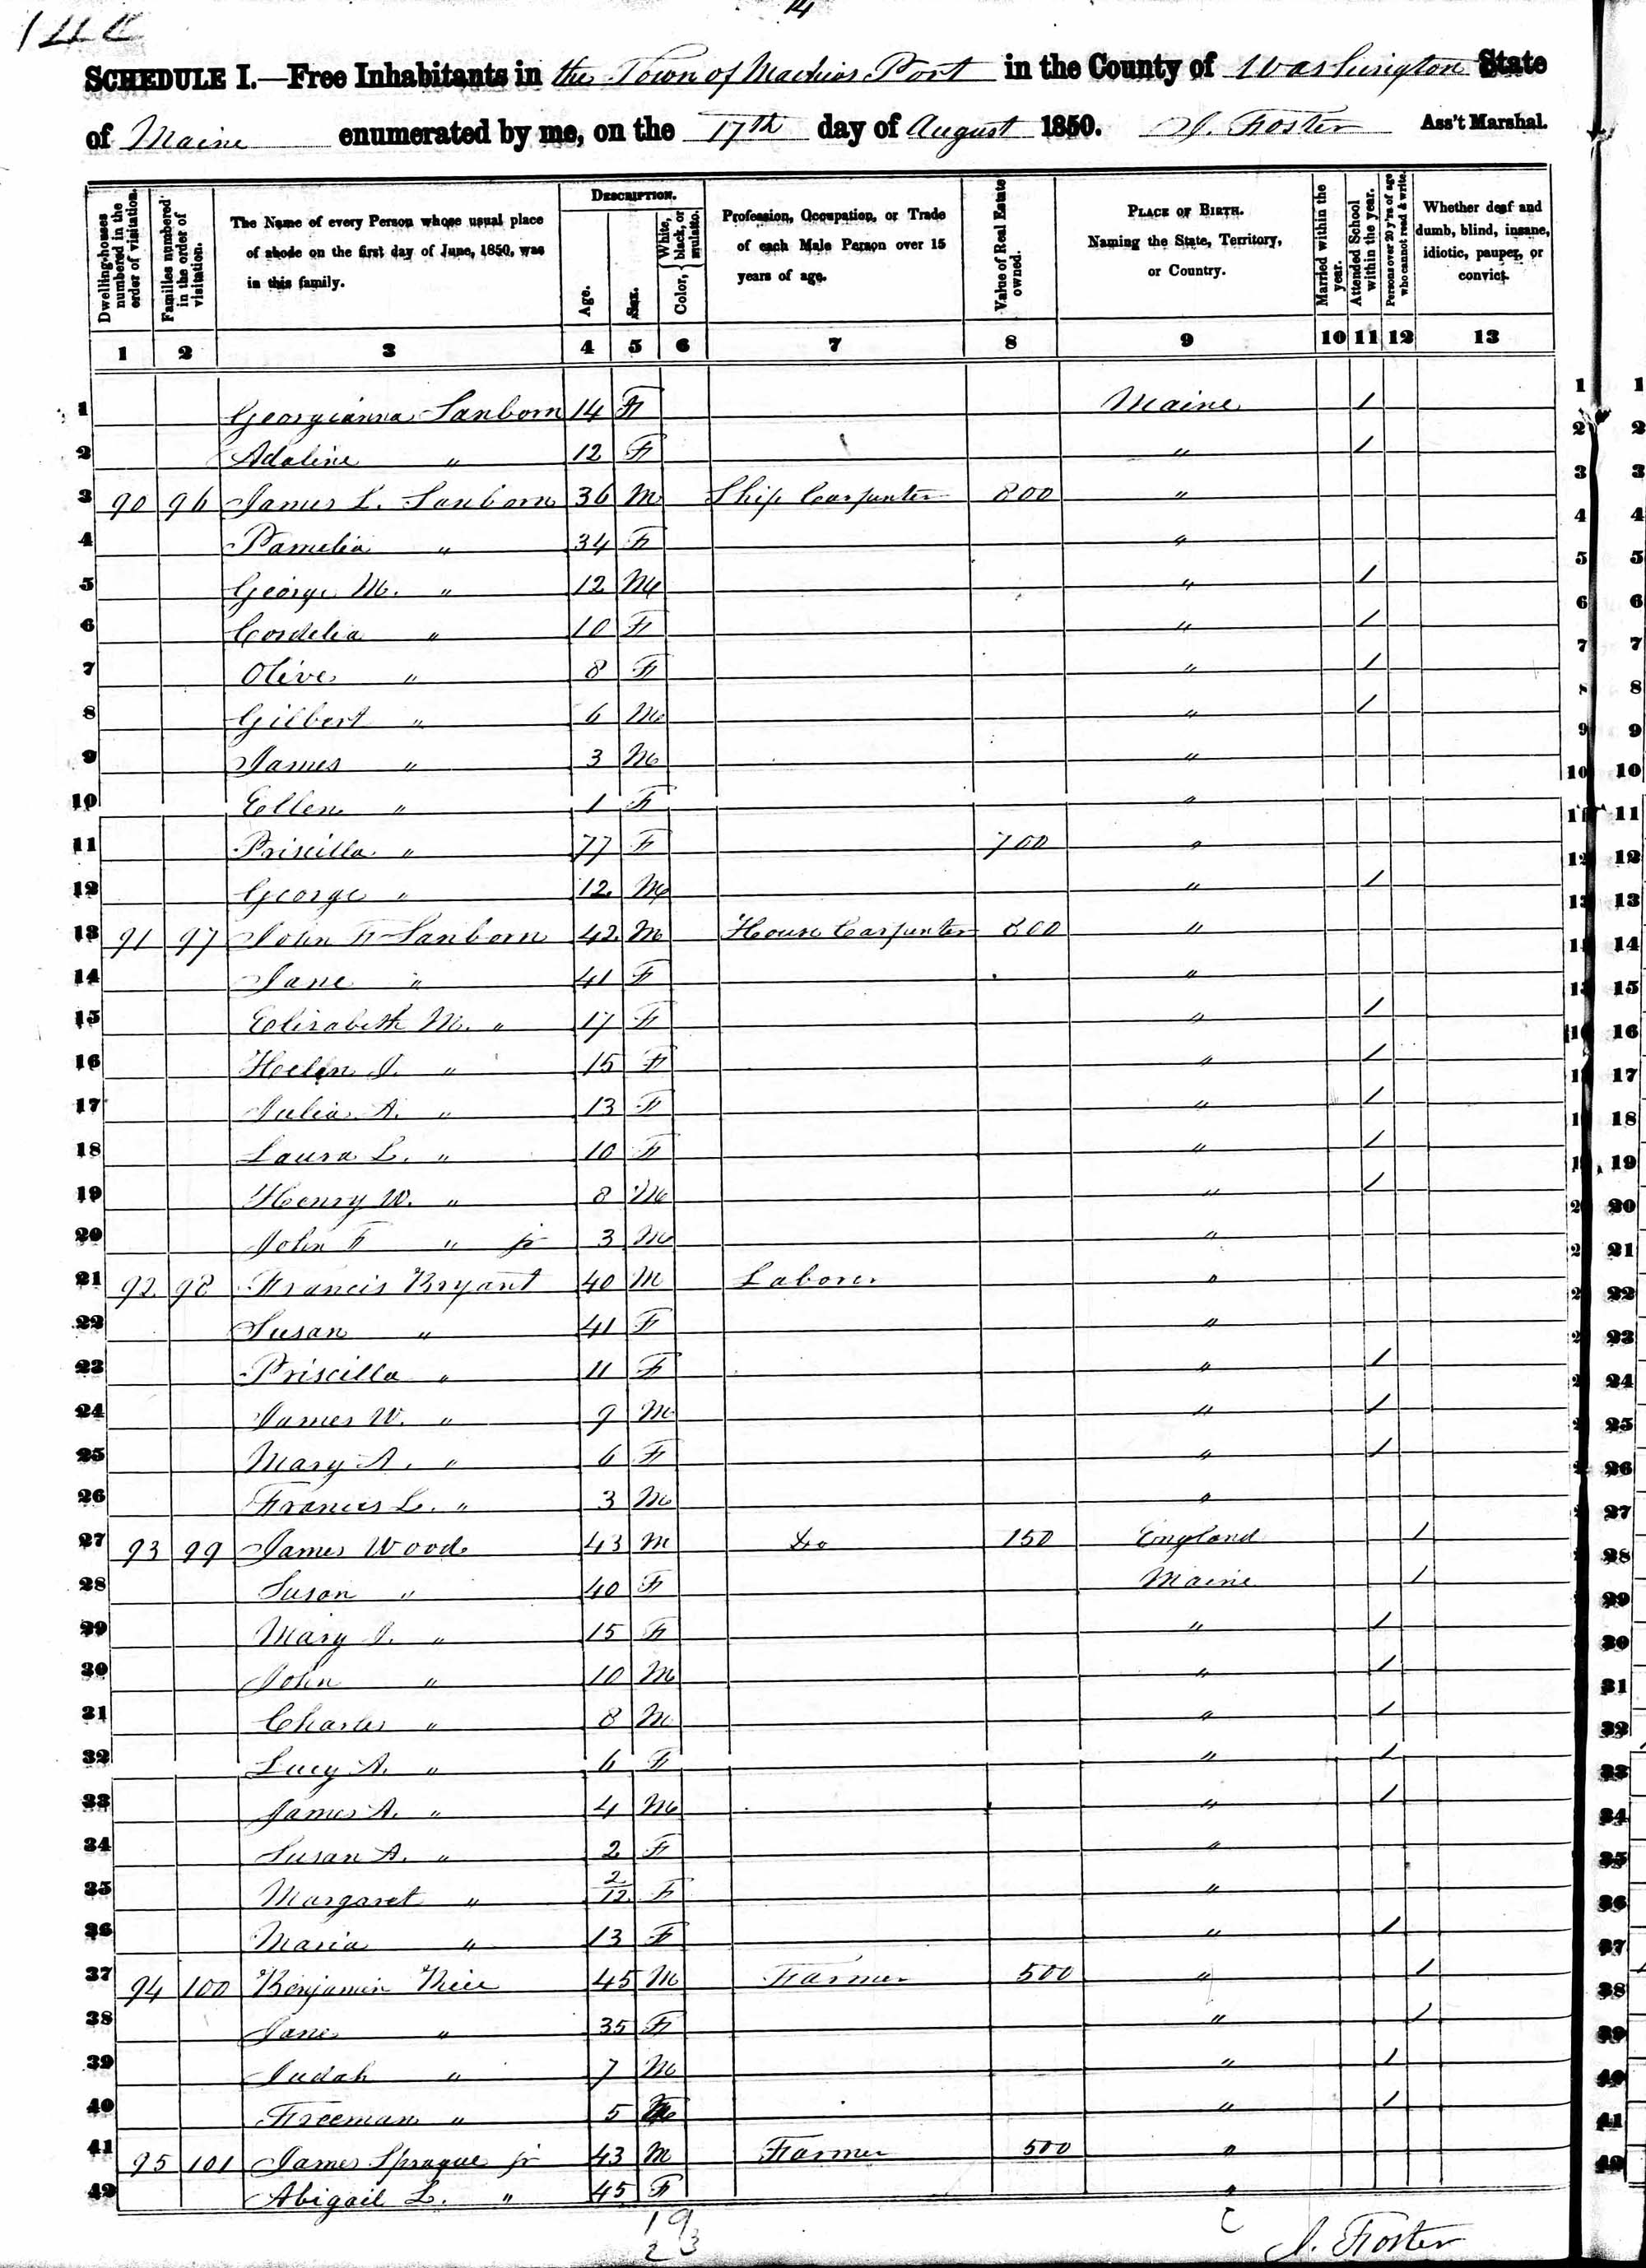 14
SCHEDULE I.—Free Inhabitants in the Town of Machias Port in the County of Washington State
of Maine enumerated by me, on the 17th day of August 1850. J. Foster Ass't Marshal.
Dwelling-houses numbered in the order of visitation.
Families numbered in the order of visitation.
The Name of every Person whose usual place of abode on the first day of June, 1850, was in this family.
DESCRIPTION.
Age.
Sex.
Color, { White, black, or mulatto.
Profession, Occupation, or Trade of each Male Person over 15 years of age.
Value of Real Estate owned.
PLACE OF BIRTH. Naming the State, Territory, or Country.
Married within the year.
Attended School within the year.
Persons over 20 y'rs of age who cannot read & write.
Whether deaf and dumb, blind, insane, idiotic, pauper, or convict.
1 2 3 4 5 6 7 8 9 10 11 12 13
1 Georgianna Sanborn 14 F Maine / 1
2 Adaline " 12 F " / 2
3 90 96 James L. Sanborn 36 M Ship Carpenter 800 " 3
4 Pamelia " 34 F " 4
5 George M. " 12 M " / 5
6 Cordelia " 10 F " / 6
7 Olive " 8 F " / 7
8 Gilbert " 6 M " / 8
9 James " 3 M " 9
10 Ellen " 1 F " 10
11 Priscilla " 77 F 700 " 11
12 George " 12 M " / 12
13 91 97 John F Sanborn 42 M House Carpenter 800 " 13
14 Jane " 41 F " 14
15 Elisabeth M. " 17 F " / 15
16 Hellen J. " 15 F " / 16
17 Julia A. " 13 F " / 17
18 Laura L. " 10 F " / 18
19 Henry W. " 8 M " / 19
20 John F " jr 3 M " 20
21 92 98 Francis Bryant 40 M Laborer " 21
22 Susan " 41 F " 22
23 Priscilla " 11 F " / 23
24 James W. " 9 M " / 24
25 Mary A. " 6 F " / 25
26 Frances L. " 3 M " 26
27 93 99 James Wood 43 M Do 150 England / 27
28 Susan " 40 F Maine / 28
29 Mary J. " 15 F " / 29
30 John " 10 M " / 30
31 Charles " 8 M " / 31
32 Lucy A. " 6 F " / 32
33 James A. " 4 M " / 33
34 Susan A. " 2 F " 34
35 Margaret " 2/12 F " 35
36 Maria " 13 F " / 36
37 94 100 Benjamin 45 M Farmer 500 " / 37
38 Jane " 35 F " / 38
39 Judah " 7 M " / 39
40 Freeman " 5 M " / 40
41 95 101 James Sprague jr 43 M Farmer 500 " 41
42 Abigail L. " 45 F " 42
19
23
J. Foster